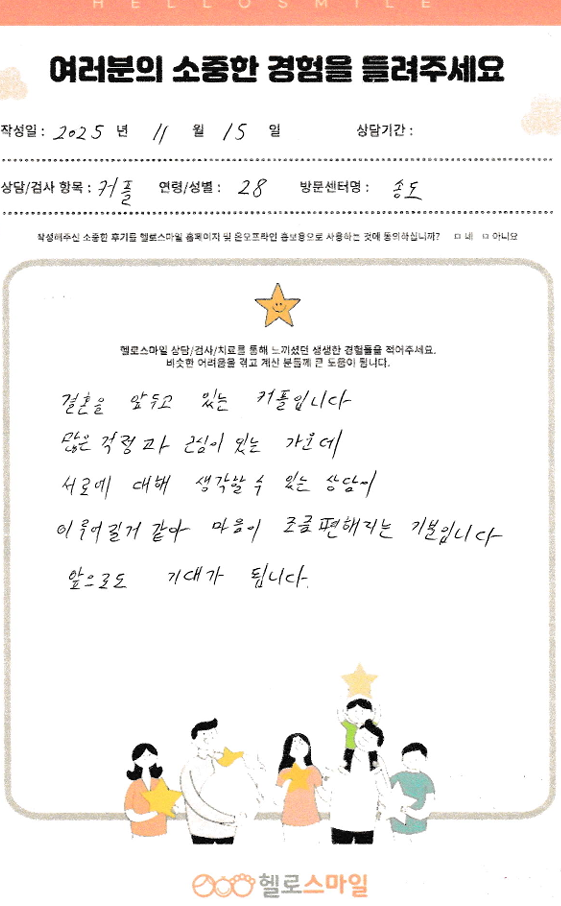 HELLOSMILE
여러분의 소중한 경험을 들려주세요
작성일 : 2025 년 11 월 15 일 상담기간 :
상담/검사 항목 : 커플 연령/성별 : 28 방문센터명 : 송도
작성해주신 소중한 후기를 헬로스마일 홈페이지 및 온오프라인 홍보용으로 사용하는 것에 동의하십니까? ㅁ 네 ㅁ 아니요
헬로스마일 상담/검사/치료를 통해 느끼셨던 생생한 경험들을 적어주세요.
비슷한 어려움을 겪고 계신 분들께 큰 도움이 됩니다.
결혼을 앞두고 있는 커플입니다
많은 걱정과 근심이 있는 가운데
서로에 대해 생각할 수 있는 상담이
이루어질거 같아 마음이 조금 편해지는 기분입니다
앞으로도 기대가 됩니다.
헬로스마일